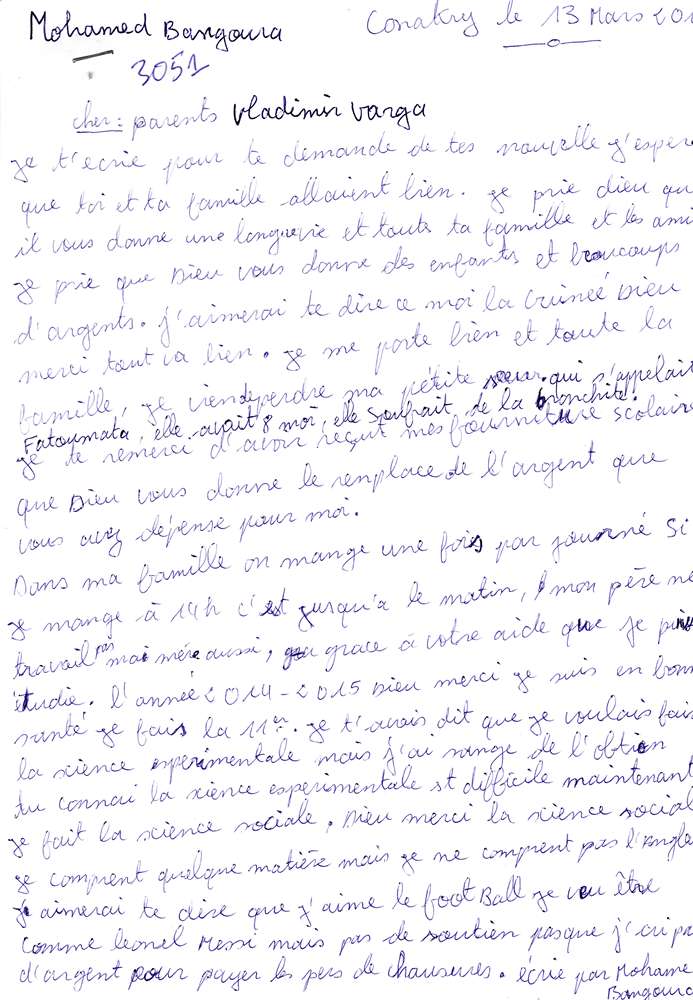 Mohamed Bangoura
Conakry le 13 Mars 201
3051
cher: parents Vladimir Varga
je t'ecrie pour te demande de tes nouvelle j'esper
que toi et ta famille allaient bien. je prie dieu qu
il vous donne une longuevie et toute ta famille et les ami
je prie que Dieu vous donne des enfants et beaucoups
d'argents. j'aimerai te dire ce moi la Guineé Dieu
merci tout va bien. je me porte bien et toute la
famille, je viendeperdre ma pétite sœur. qui s'appelait
Fatoumata, elle avait 8 moi, elle soufrait de la bronchite.
je te remerci d'avoir reçut mes fourniture scolaire
que Dieu vous donne le remplace de l'argent que
vous avez dépense pour moi.
Dans ma famille on mange une fois par journé Si
je mange à 14h c'est jusqu'a le matin, mon père ne
travail pas mai mére aussi, grace à votre aide que je
étudie. l'année 2014-2015 Dieu merci je suis en bonn
santé je fais la 11ème. je t'avais dit que je voulais fais
la science experimentale mais j'ai range de l'obtion
tu connai la xience esperimentale st difficile maintenant
je fait la science sociale, Dieu merci la science social
je comprent quelque matière mais je ne comprent pas l'Angle
j'aimerai te dire que j'aime le foot Ball je veu être
comme leonel Messi mais pas de soutien pasque j'ai pa
d'argent pour payer les pers de chausures. écrie par Mohame
Bangoura